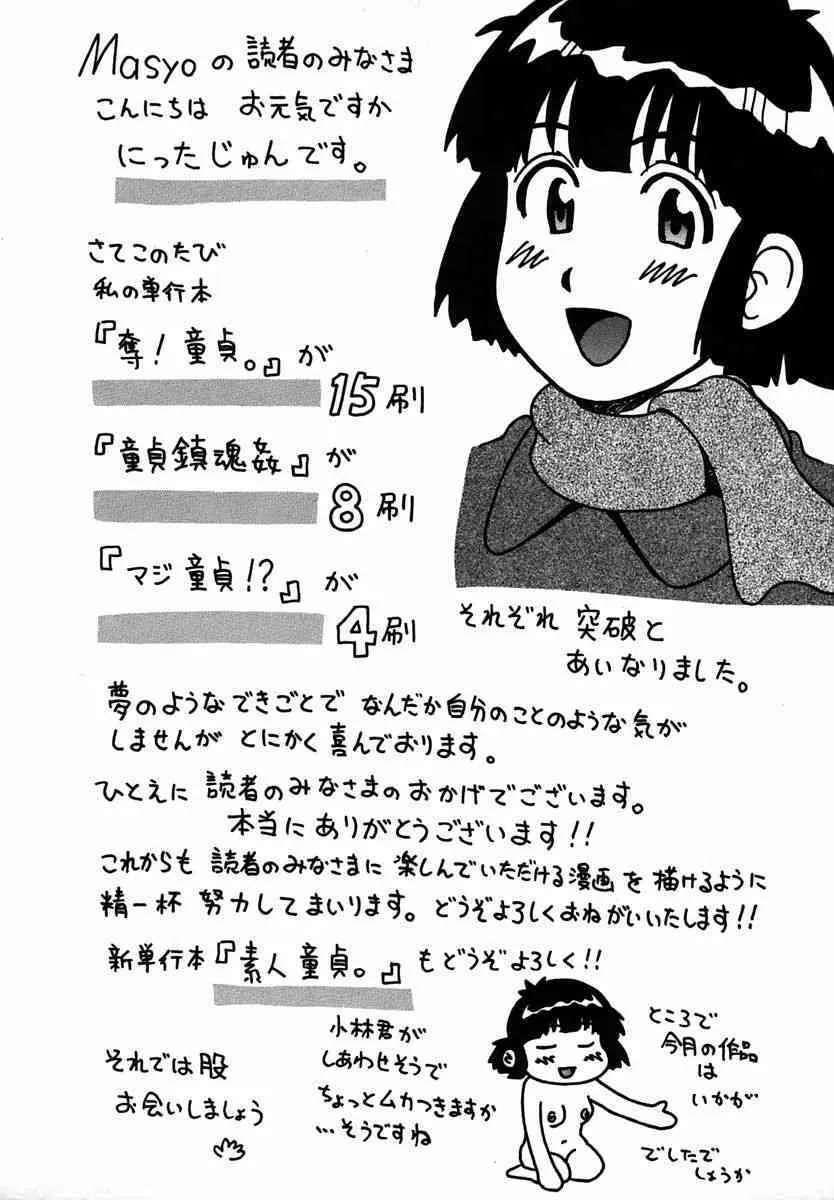 Masyoの読者のみなさま
こんにちは お元気ですか
にったじゅんです。
さてこのたび
私の単行本
『奪!童貞。』が
15刷
『童貞鎮魂姦』が
8刷
『マジ童貞!?』が
4刷
それぞれ 突破と
あいなりました。
夢のようなできごとで なんだか自分のことのような気が
しませんが とにかく喜んでおります。
ひとえに 読者のみなさまのおかげでございます。
本当にありがとうございます!!
これからも 読者のみなさまに 楽しんでいただける漫画を描けるように
精一杯 努力してまいります。どうぞよろしくおねがいいたします!!
新単行本『素人童貞。』もどうぞよろしく!!
ところで
今月の作品
は
いかが
でしたで
しょうか
小林君が
しあわせそうで
ちょっとムカつきますか
…そうですね
それでは股
お会いしましょう